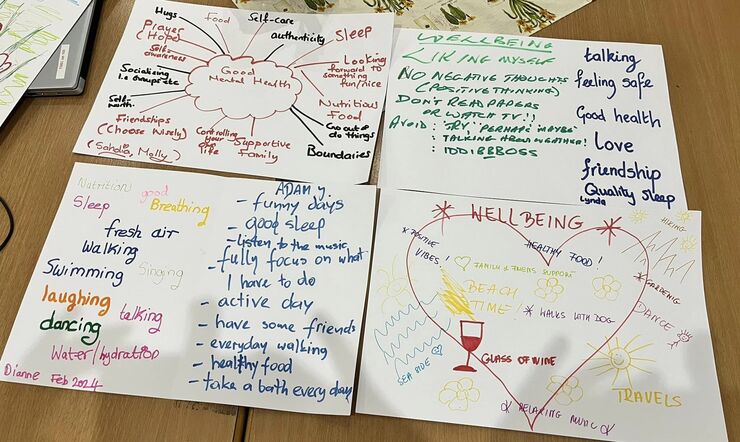 Hugs
Food
Self-care
authenticity
SLEEP
Prayer
(Hope)
Self-
awareness
Looking
forward to
something
fun/nice
Socializing
i.e
Good
Mental Health
Self-
worth
Nutrition
Food
Go out &
do things
Friendships
(Choose Wisely)
(Sahdia, Molly)
Controlling
your
life
Supportive
Family
Boundaries
WELLBEING
LIKING MYSELF
NO NEGATIVE THOUGHTS
(POSITIVE THINKING)
DON'T READ PAPERS
OR WATCH TV!!)
AVOID: 'TRY' 'PERHAPS' 'MAYBE'
: TALKING ABOUT WEATHER!
: IDDIBBBOSS
talking
feeling safe
Good health
Love
friendship
Quality sleep
Lynda
Nutrition
good
Sleep
Breathing
fresh air
Walking
Swimming
Singing
laughing
talking
dancing
Water/hydration
Dianne Feb 2024
ADAM Y.
- funny days
- good sleep
- listen to the music
- fully focus on what
I have to do
- active day
- have some friends
- everyday walking
- healthy food
- take a bath every days
WELLBEING
POSITIVE
VIBES!
HEALTHY FOOD!
HIKING
FAMILY & FRIENDS SUPPORT
BEACH
TIME!
WALKS WITH DOG
GARDENING
DANCE
SEA SIDE
GLASS OF WINE
TRAVELS
RELAXING MUSIC